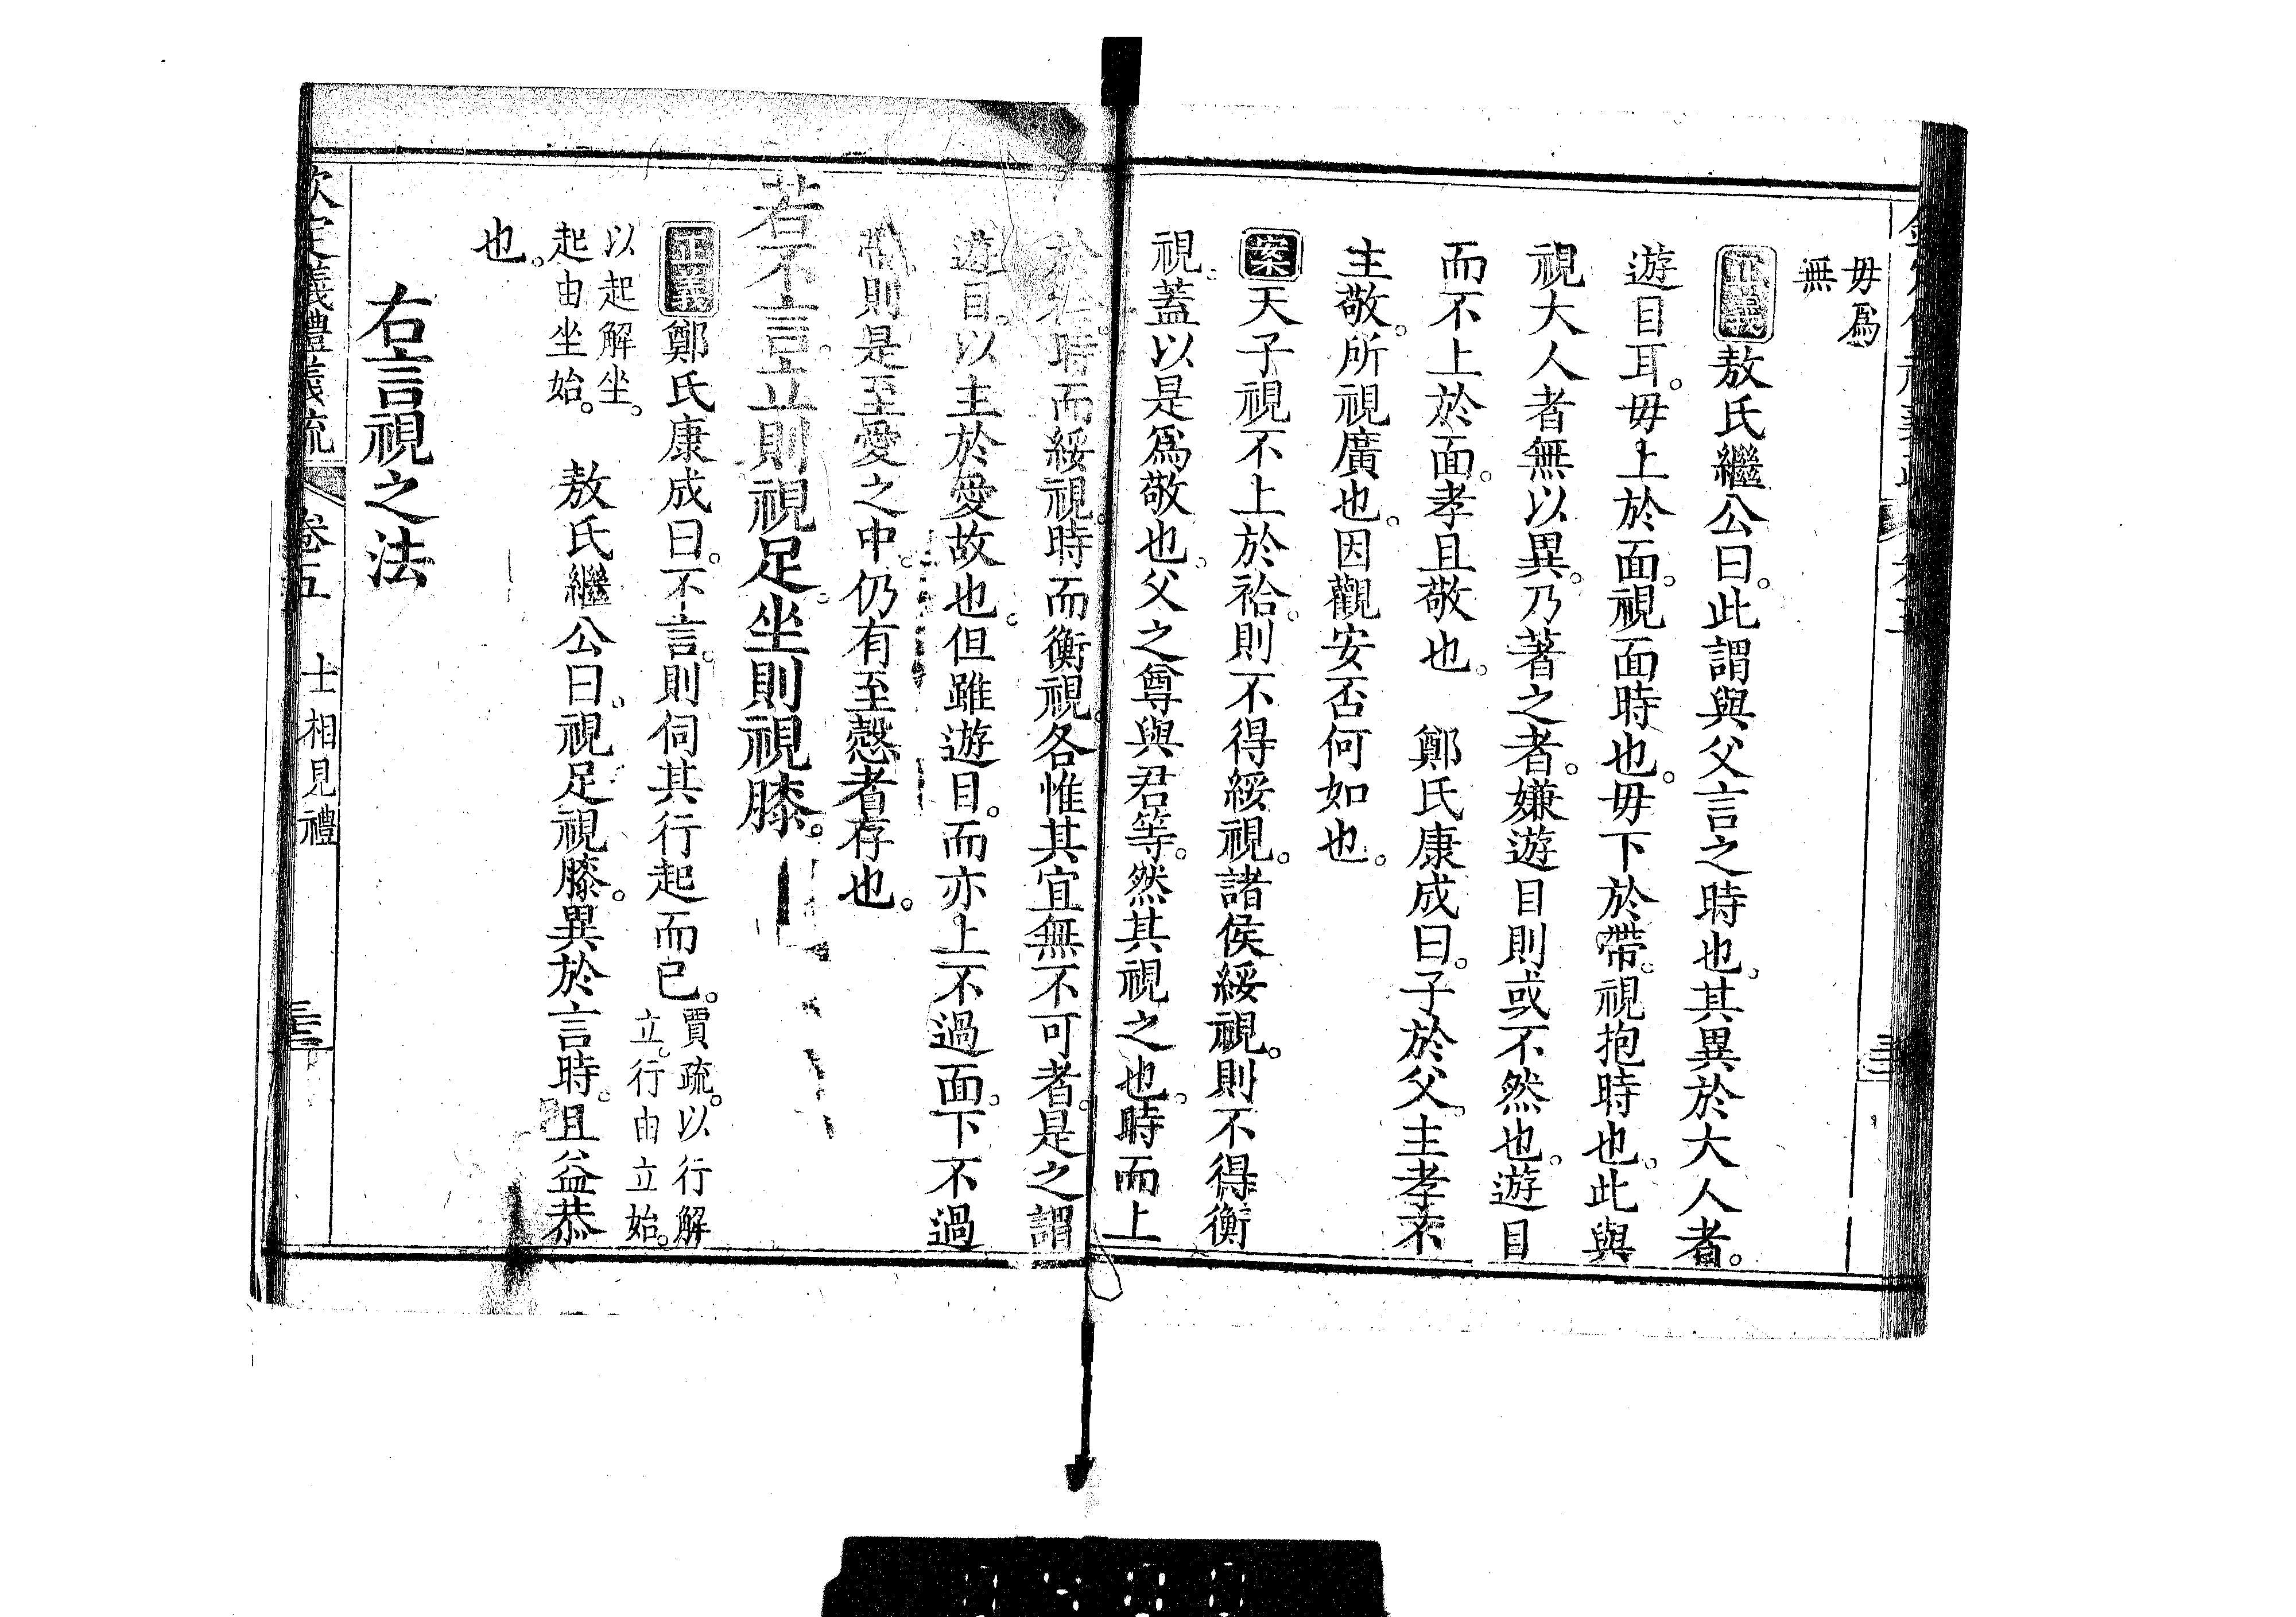 毋爲
無
正義敖氏繼公曰。此謂與父言之時也。其異於大人者。
遊目耳。毋上於面。視面時也。毋下於帶。視抱時也。此與
視大人者無以異。乃著之者。嫌遊目則或不然也。遊目
而不上於面。孝且敬也。 鄭氏康成曰。子於父。主孝不
主敬。所視廣也。因觀安否何如也。
案天子視不上於袷。則不得綏視。諸侯綏視。則不得衡
視。蓋以是爲敬也。父之尊與君等。然其視之也。時而上
於袷。時而綏視。時而衡視。各惟其宜無不可者。是之謂
遊目。以主於愛故也。但雖遊目。而亦上不過面。下不過
帶。則是至愛之中。仍有至慤者存也。
若不言。立則視足。坐則視膝。
正義鄭氏康成曰。不言。則伺其行起而已。賈疏。以行解
立。行由立始。
以起解坐。
起由坐始。 敖氏繼公曰。視足視膝。異於言時。且益恭
也。
右言視之法
欽定義禮義疏 卷五 士相見禮